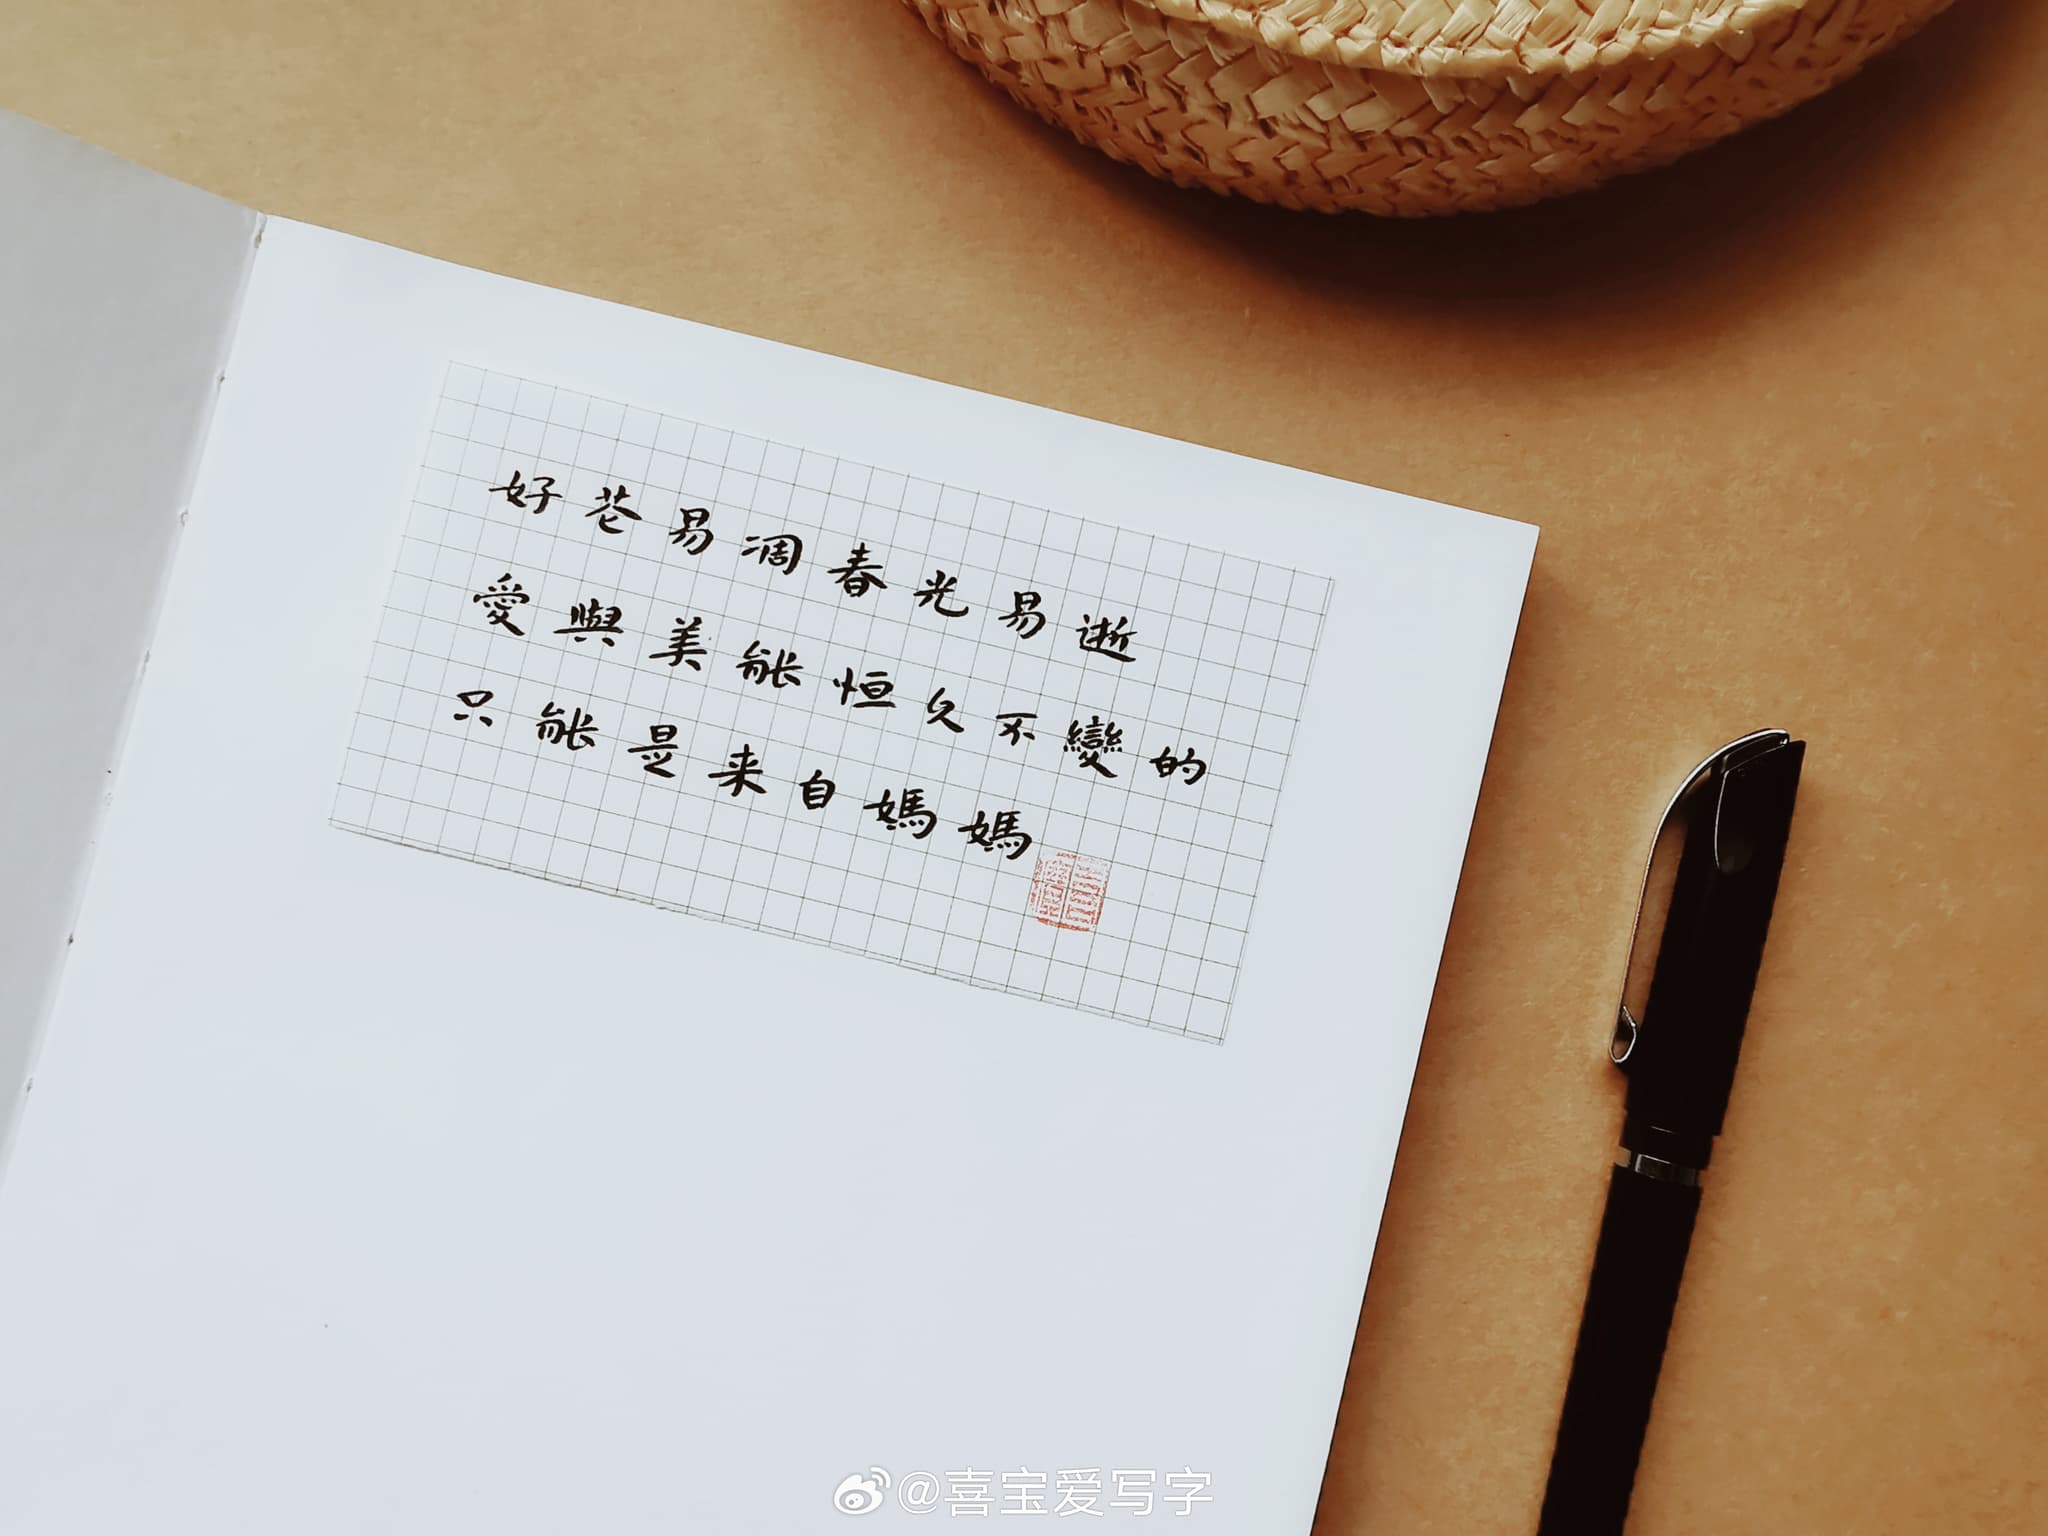 好花易凋春光易逝
愛與美能恒久不變的
只能是来自媽媽
@喜宝爱写字